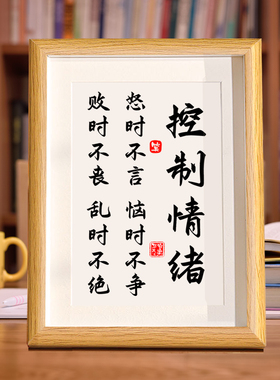 控制情绪
怒时不言 恼时不争
败时不丧 乱时不绝